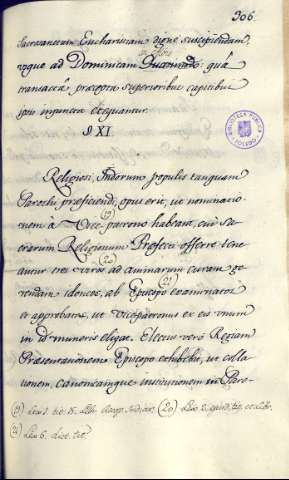 306.
Sacrosanctam Eucharistiam digne suscipiendam,
usque ad Dominicam qua
transacta, praecepta superioribus capitibus
ipsis injuncta exequantur.
§ XI.
Religiosi, Indorum populis tanquam
Parochi praeficiendi, opus erit, ut nominatio-
nem à (19) Vice-patrono habeant, cui Sa-
crarum Religionum Praefecti offerre tene-
antur tres viros (20) ad animarum curam ge-
rendam idoneos, ab Episcopo (21) examinatos
et approbatos, ut Vicepatronus ex eis unum
in id muneris eligat. Electus verò Regiam
Praesentationem Episcopo exhibebit, ut colla-
tionem, canonicamque institutionem in Paro-
(19) Leu 3. tit. 15. Lib. Recop. Indiar. (20) Leu
(21) Leu 6. dict. tit.
BIBLIOTECA PUBLICA
TOLEDO